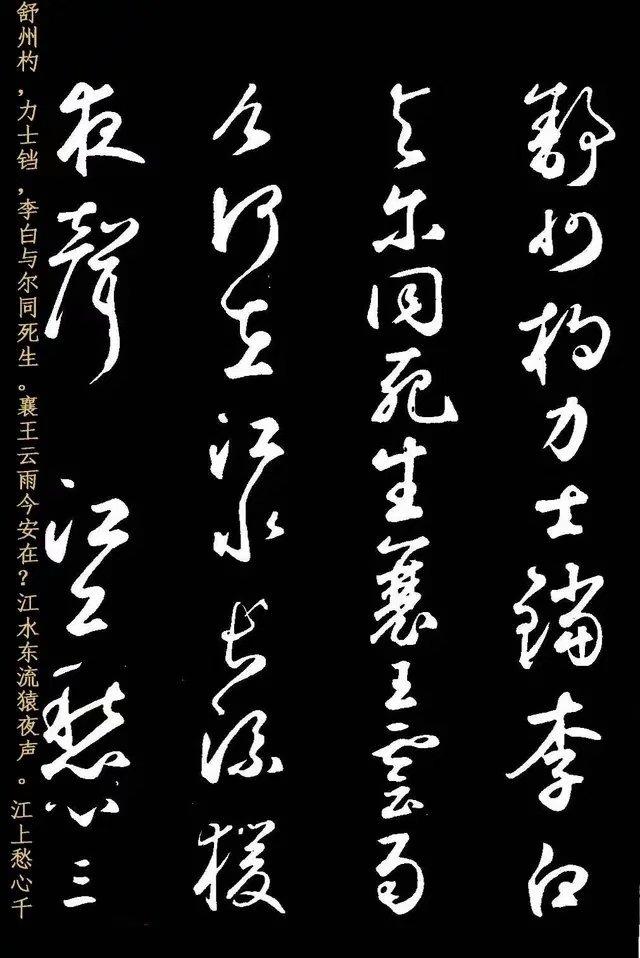 舒州杓力士鐺李白
与尔同死生襄王雲雨
今何在江水东流猨
夜聲 江上愁心三
舒州杓，力士铛，李白与尔同死生。襄王云雨今安在？江水东流猿夜声。江上愁心千